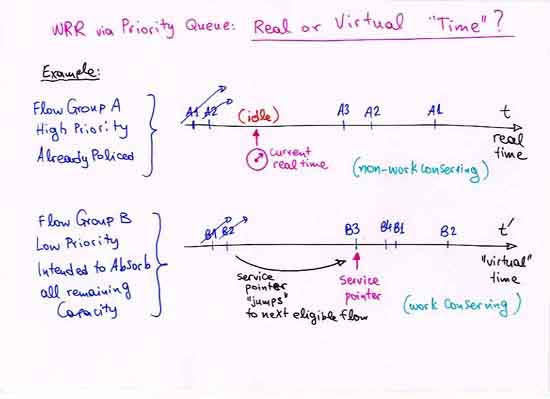 WRR via Priority Queue: Real or Virtual "Time"?
Example:
Flow Group A
High Priority
Already Policed
A1 A2 (idle) A3 A2 A1 t
real
time
current
real time
(non-work conserving)
Flow Group B
Low Priority
Intended to Absorb
all remaining
Capacity
B1 B2 B3 B4 B1 B2 t'
"virtual"
time
service
pointer
"jumps"
to next eligible flow
Service
pointer
(work conserving)